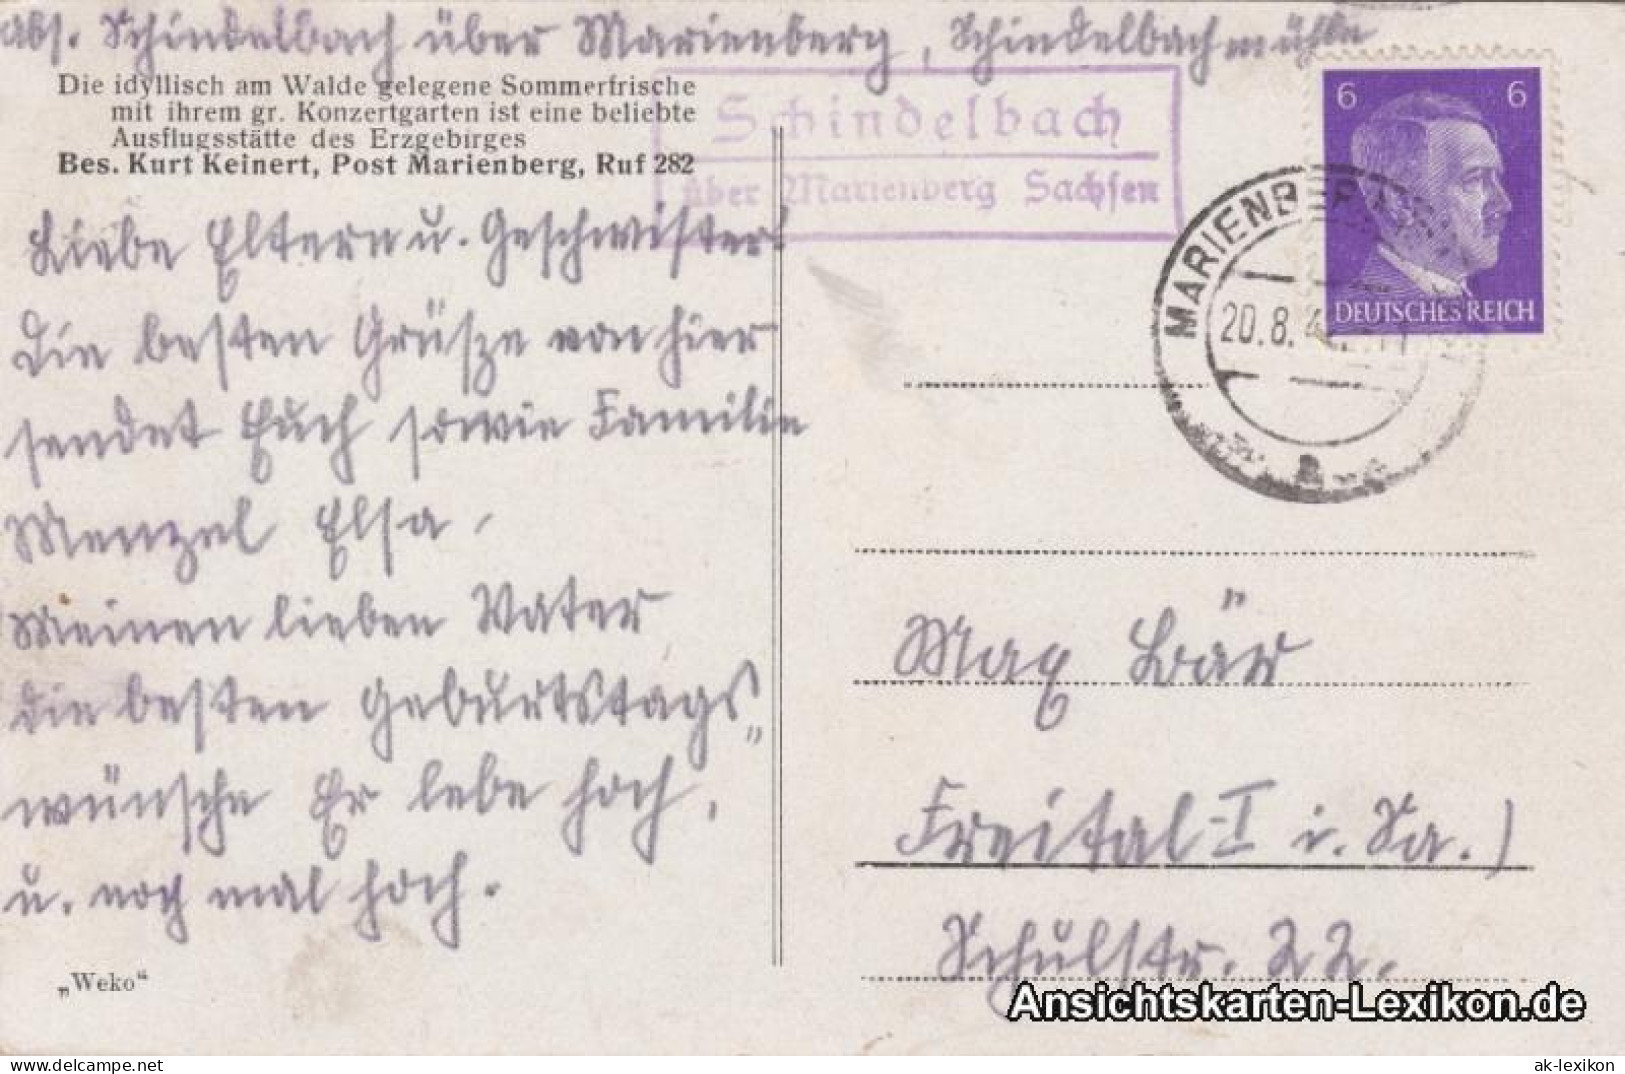 Abs. Schindelbach über Marienberg, Schindelbachmühle
Die idyllisch am Walde gelegene Sommerfrische
mit ihrem gr. Konzertgarten ist eine beliebte
Ausflugsstätte des Erzgebirges
Bes. Kurt Keinert, Post Marienberg, Ruf 282
Schindelbach
über Marienberg Sachsen
6 6
DEUTSCHES REICH
MARIENBERG
20.8.4
Liebe Eltern u. Geschwister!
Die besten Grüsze von hier
sendet Euch sowie Familie
Menzel Elsa.
Meinen lieben Vater
die besten Geburtstags„
wünsche Er lebe hoch,
u. noch mal hoch.
„Weko“
Max Bär
Freital-I i. Sa.)
Schulstr. 22.
Ansichtskarten-Lexikon.de
ak-lexikon